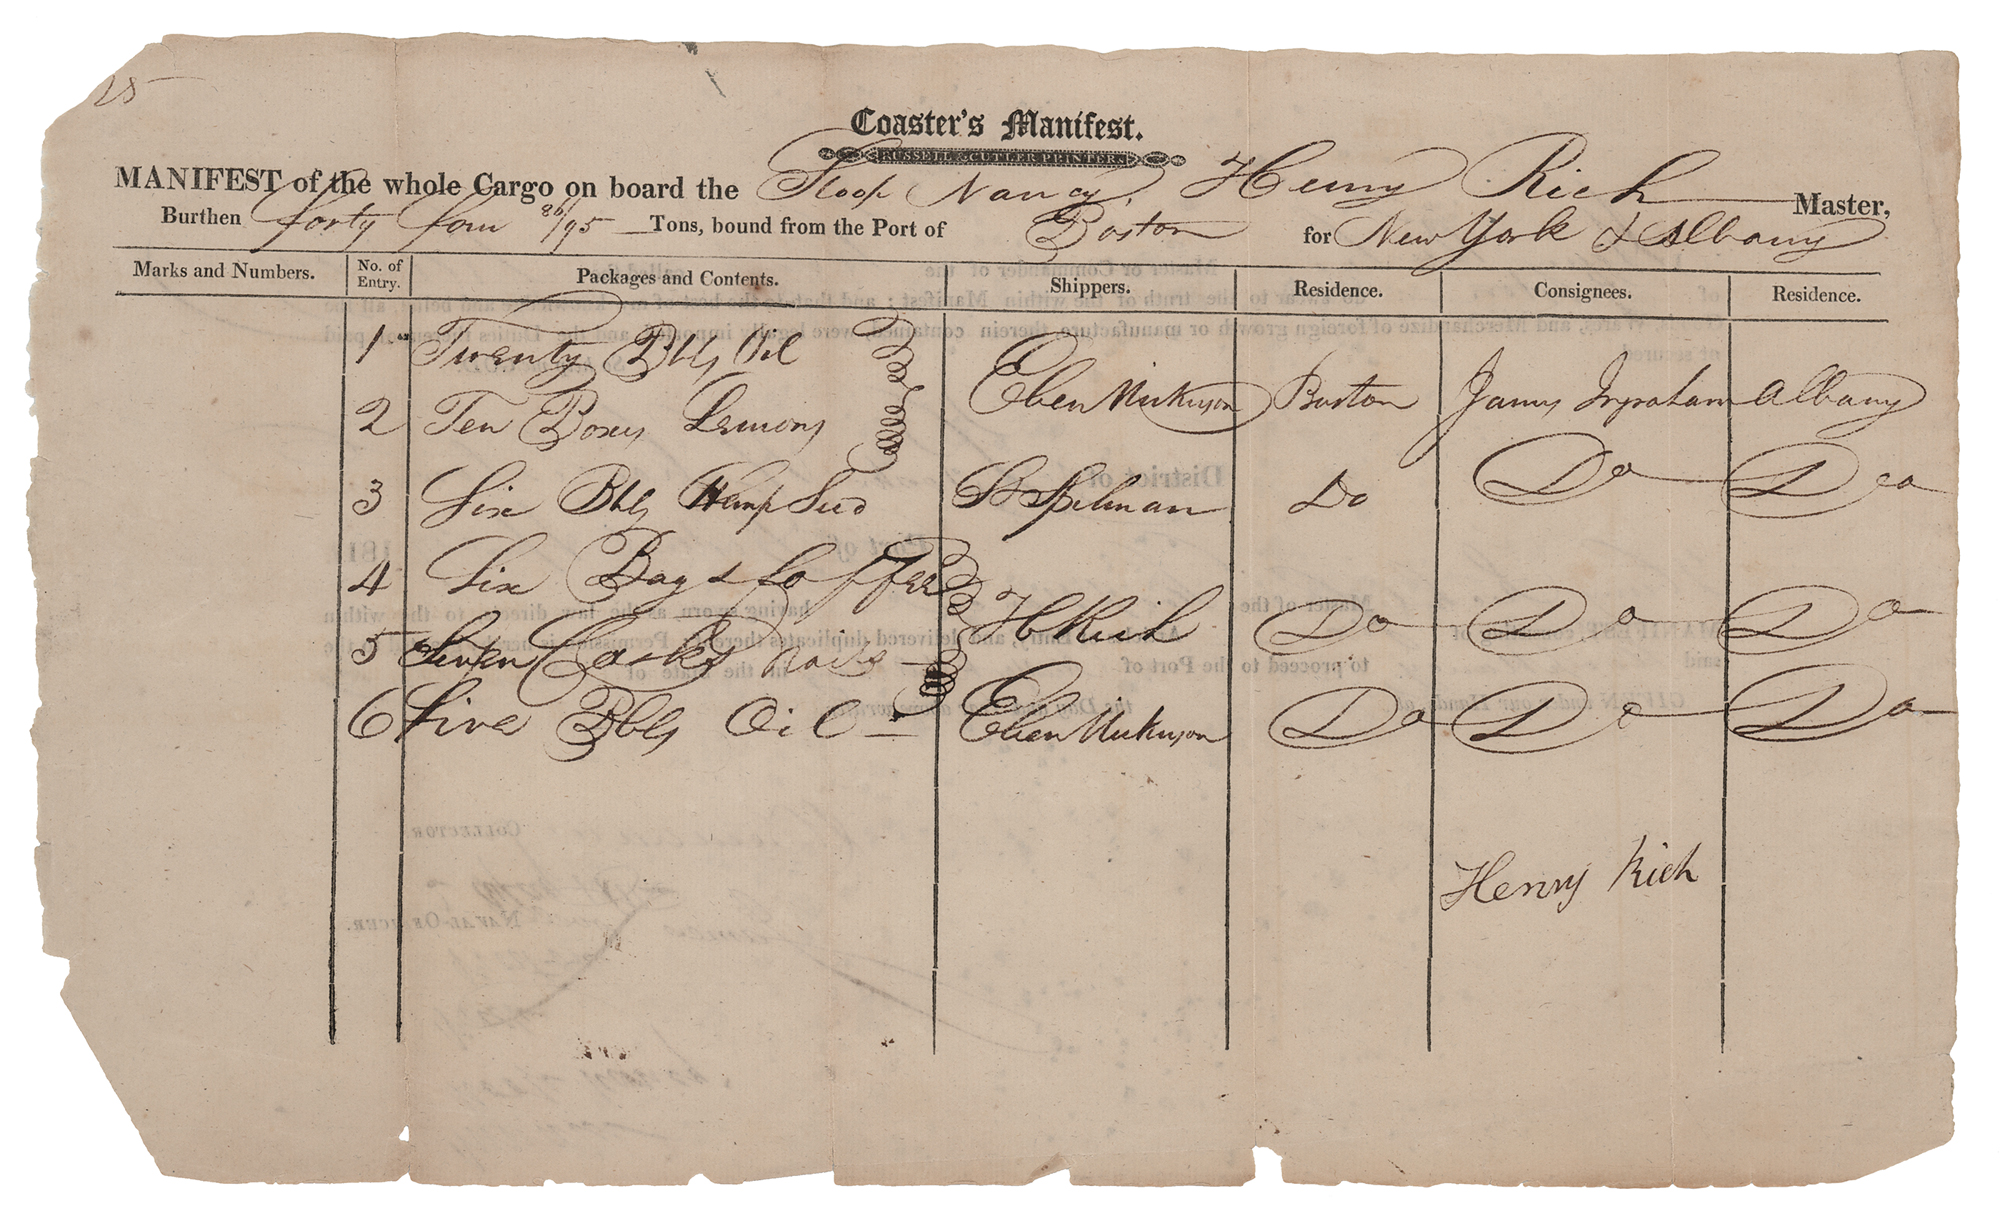 25
Coaster's Manifest.
RUSSELL & CUTLER PRINTERS
MANIFEST of the whole Cargo on board the Sloop Nancy, Henry Rich Master,
Burthen forty four 86/95 Tons, bound from the Port of Boston for New York & Albany
Marks and Numbers. No. of Entry. Packages and Contents. Shippers. Residence. Consignees. Residence.
1 Twenty Bbls Oil
2 Ten Boxes Lemons Eben Boston James Ingraham Albany
3 Six Bbls Hemp Seed Spelman Do Do Do
4 Six Bags Coffee
5 Casks Nails H Rich Do Do Do
6 Five Bbls Oil Eben Do Do Do
Henry Rich